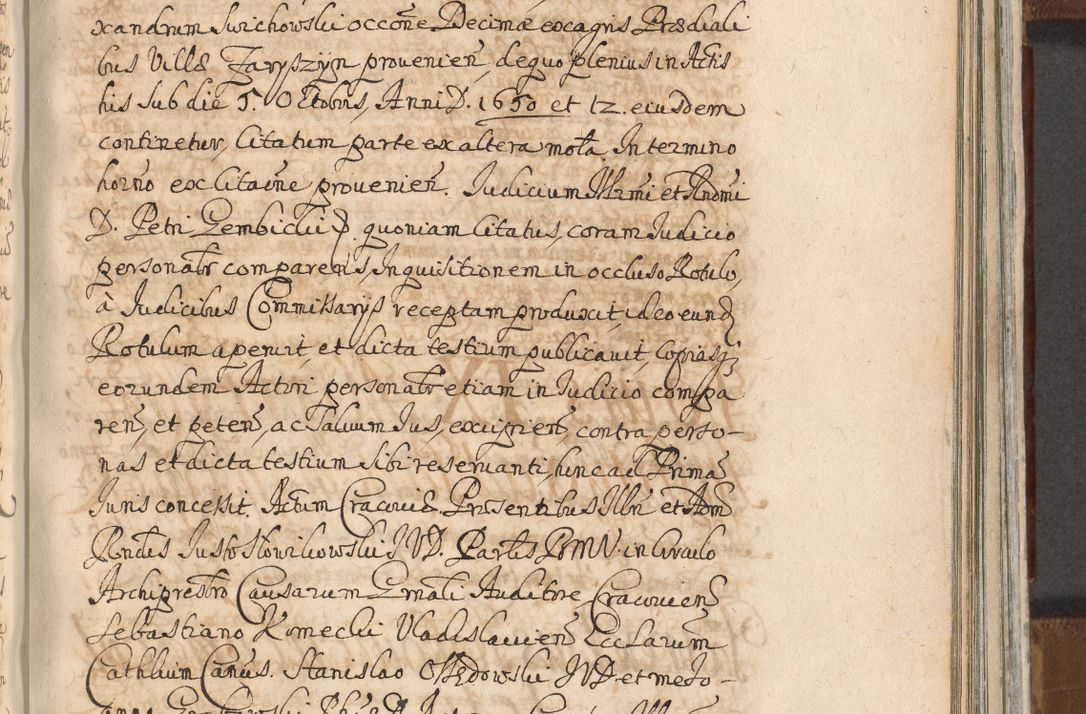 xandrum Swichowski occoñe Decimæ ex agris Prædiali
bus Villæ Zaryszyn provenieñ, de quo plenius in Actis
his sub die 5. Octobris, Anni D. 1650 et 12. eiusdem
continetur, Citatum parte ex altera mota. In termino
horño ex Citaõne provenieñ. Iudicium Illrmi et Rndmi
D. Petri Gembicki p. quoniam Citatus, coram Iudicio
personalr comparens, Inquisitionem in occluso Rotulo,
à Iudicibus Commissarijs receptam produxit, ideo eund
Rotulum aperuit, et dicta testium publicavit, Copiasq;
eorundem Actori personalr etiam in Iudicio compa
ren, et peten, ac saluum Ius, excipien, contra perso-
nas et dicta testium sibi reservanti, hinc ad Prima
Iuris concessit. Actum Cracoviæ. Præsentibus Illri et Adm
Rndis Iusto Słowikowski IVD. Partis BMV. in Circulo
Archipresbro Causarum Gnali Auditore, Cracovien
Sebastiano Komecki Vladislavien Ecclarum
Cathlium Canõcis. Stanislao Ossędowski IVD. et me Jo-